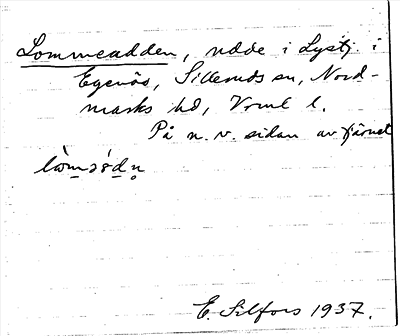 Lommeadden, udde i Lystj. i
Egenäs, Silleruds sn, Nord-
marks hd, Vrml l.
På n. v. sidan av tjärnet
E. Silfors 1937.